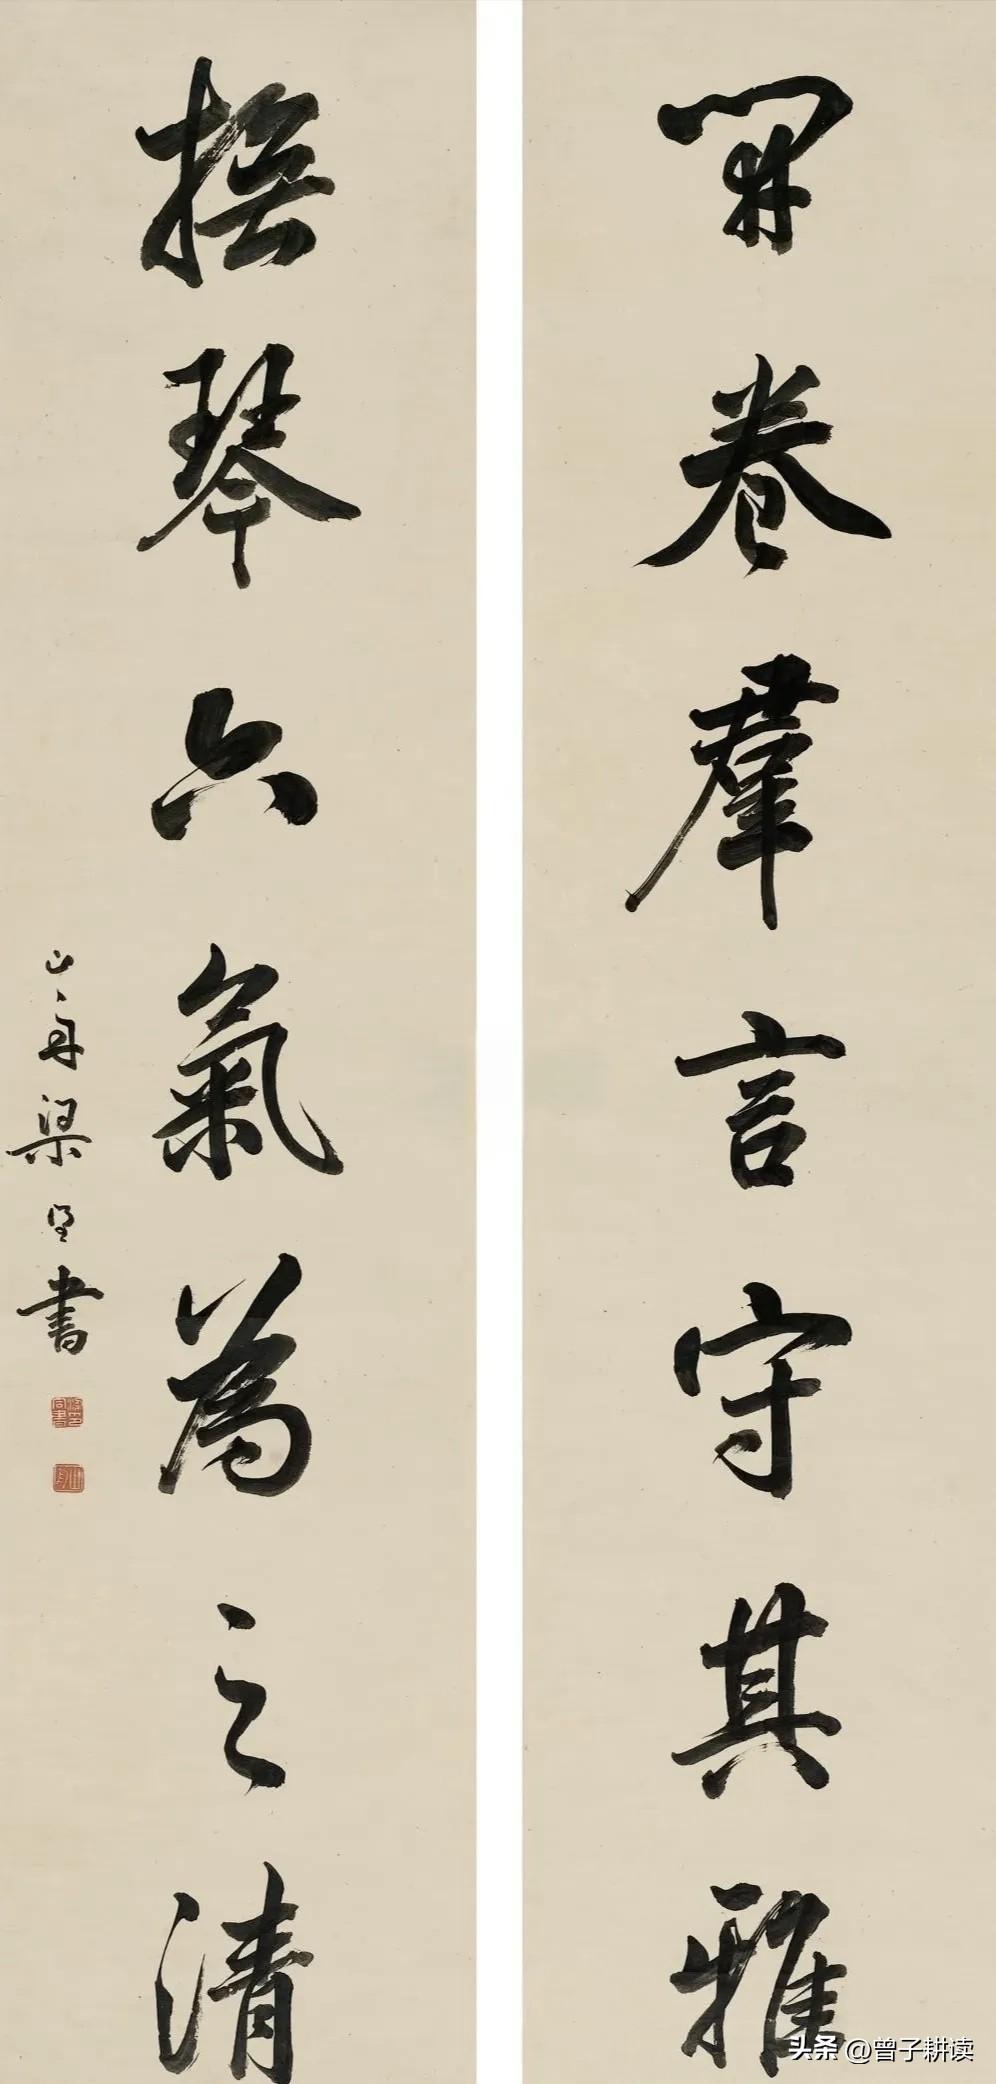 開卷羣言守其雅
撫琴六氣為之清
山舟梁同書
头条 @曾子耕读